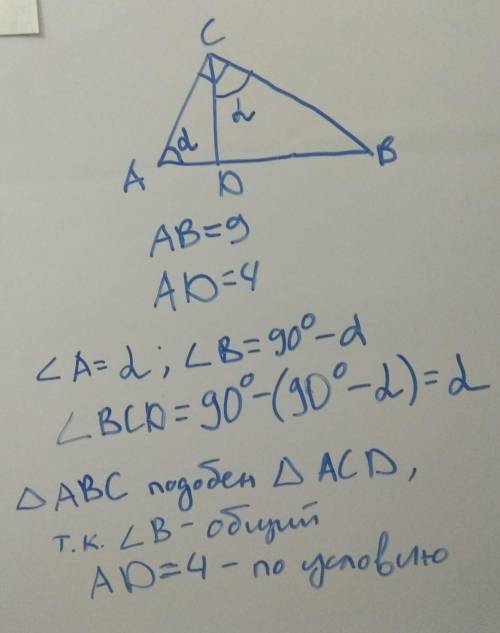 C
α
α
A
D
B
AB=9
AD=4
∠A=α; ∠B=90°-α
∠BCD=90°-(90°-α)=α
△ABC подобен △ACD,
т.к. ∠B-общий
AD=4-по условию